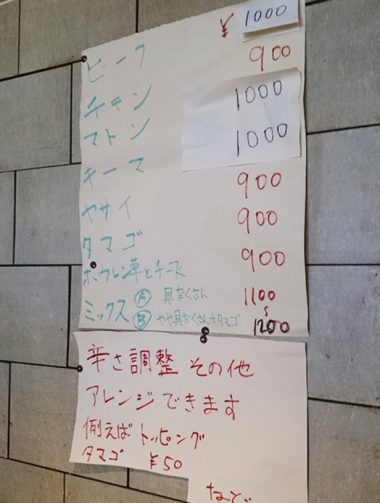 ビーフ ¥1000
チキン 900
マトン 1000
キーマ 1000
ヤサイ 900
タマゴ 900
ホウレン草とチーズ 900
ミックス Ⓐ 具だくさん 1100
Ⓑ やや具だくさん+タマゴ 1200
辛さ調整 その他
アレンジできます
例えば トッピング
タマゴ ¥50
など